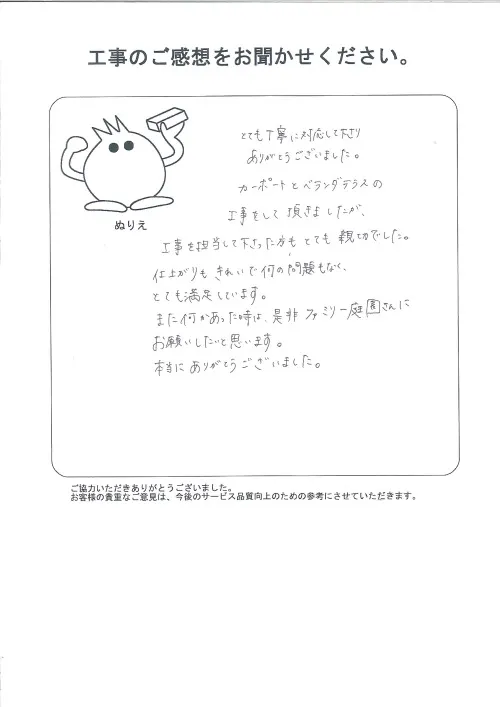 工事のご感想をお聞かせください。
ぬりえ
とても丁寧に対応して下さり
ありがとうございました。
カーポートとベランダテラスの
工事をして頂きましたが、
工事を担当して下さった方もとても親切でした。
仕上がりもきれいで何の問題もなく、
とても満足しています。
また何かあった時は、是非ファミリー庭園さんに
お願いしたいと思います。
本当にありがとうございました。
ご協力いただきありがとうございました。
お客様の貴重なご意見は、今後のサービス品質向上のための参考にさせていただきます。